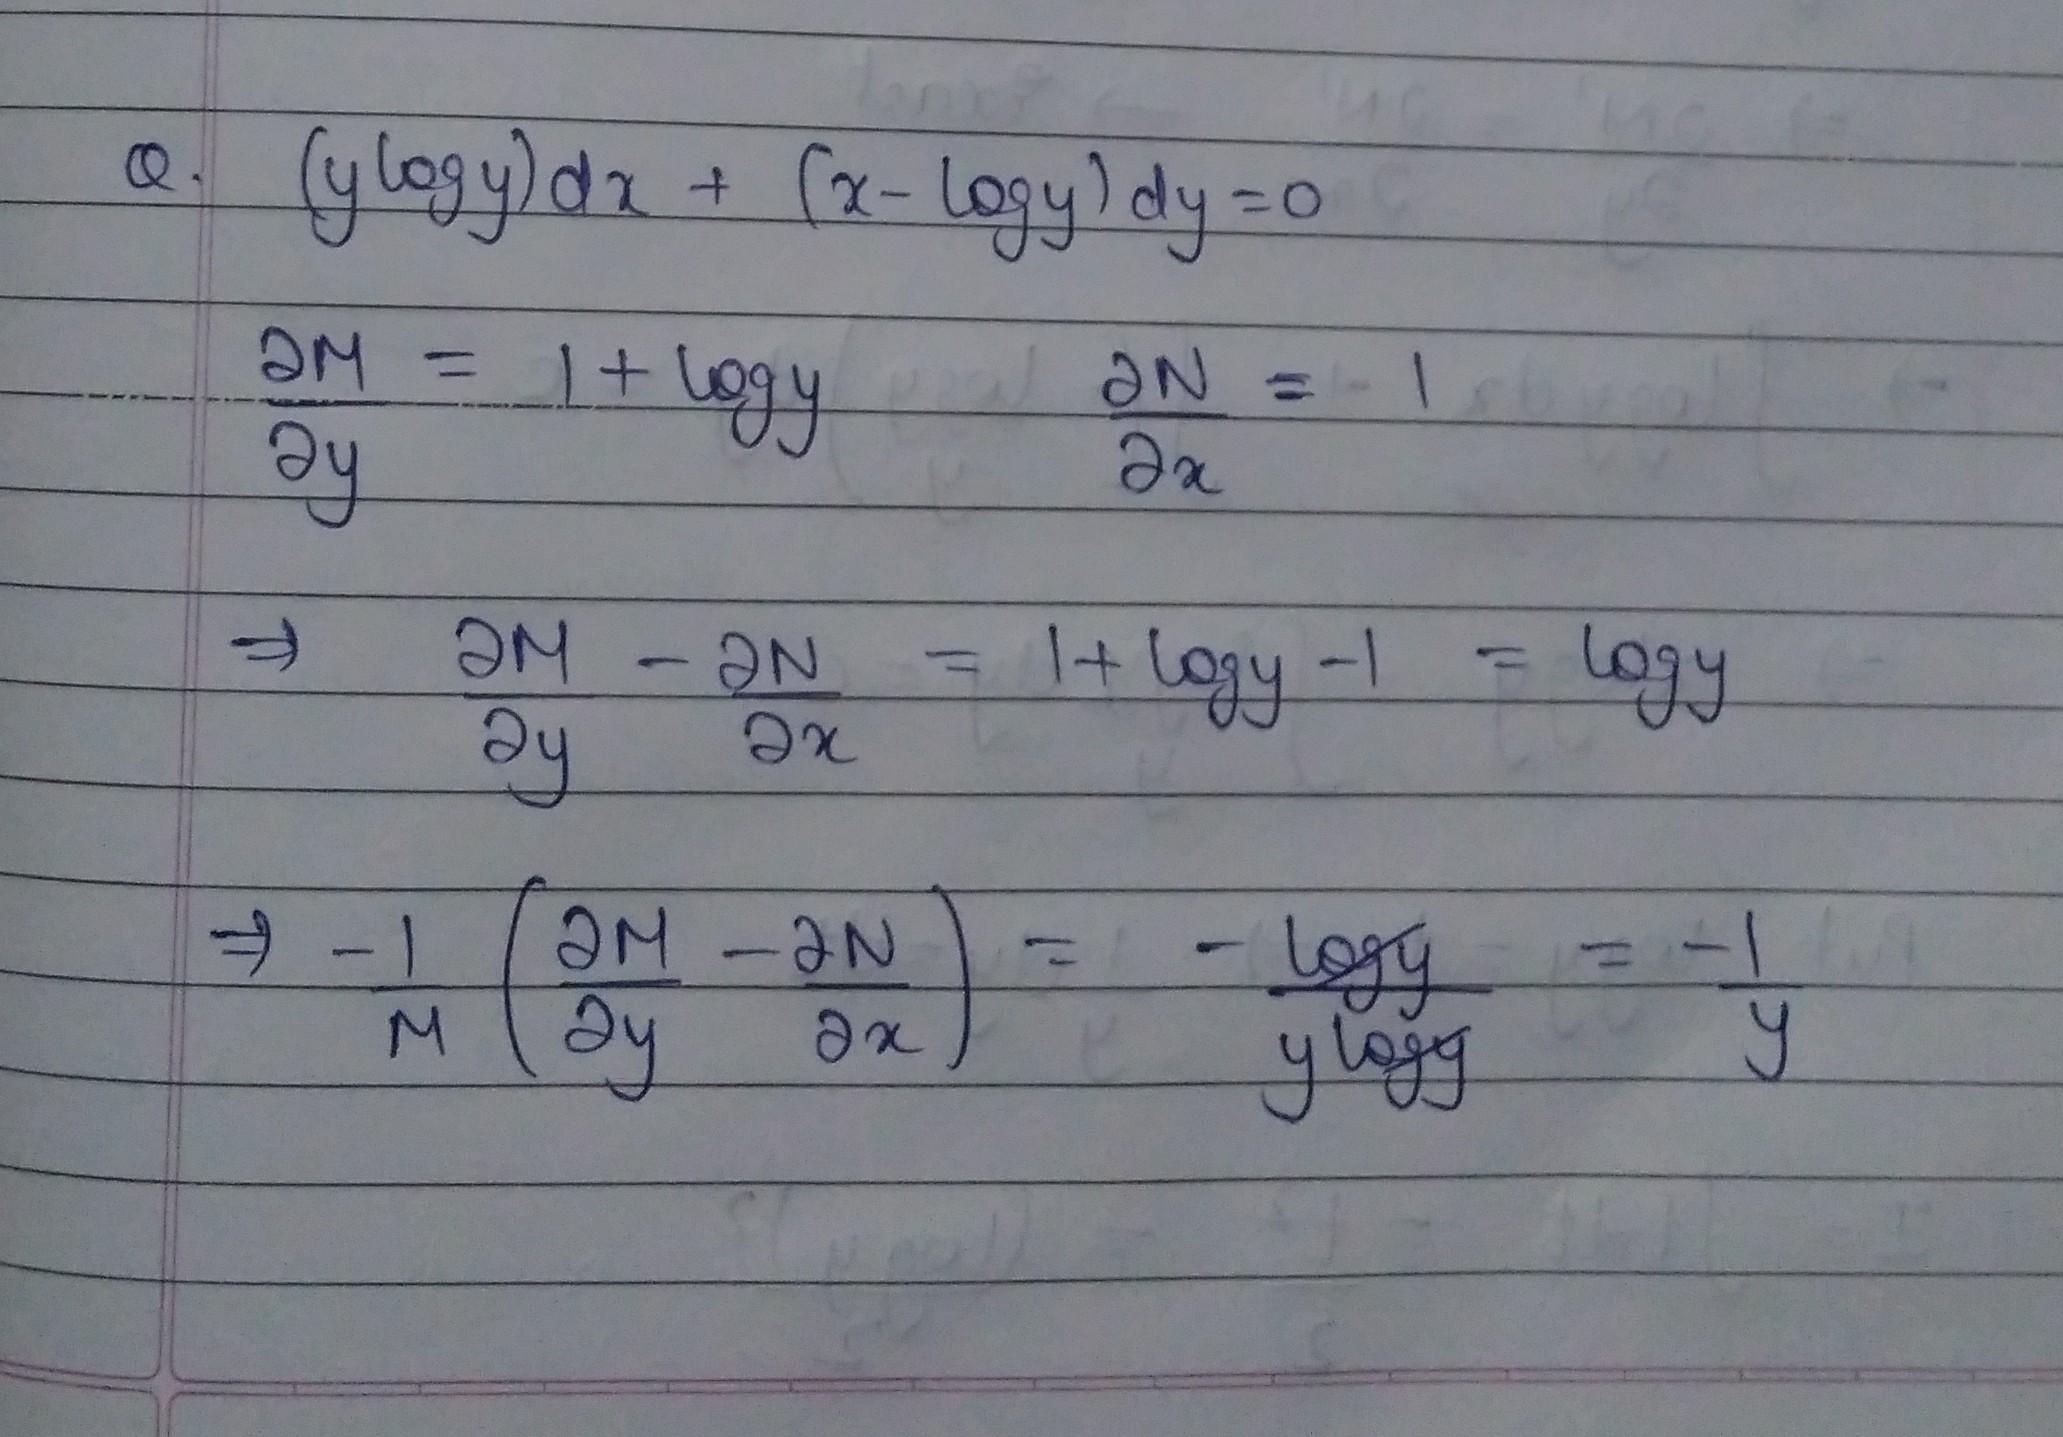 Q. (y log y) dx + (x - log y) dy = 0
∂M/∂y = 1 + log y ∂N/∂x = 1
⇒ ∂M/∂y - ∂N/∂x = 1 + log y - 1 = log y
⇒ -1/M (∂M/∂y - ∂N/∂x) = - log y / y log y = -1/y